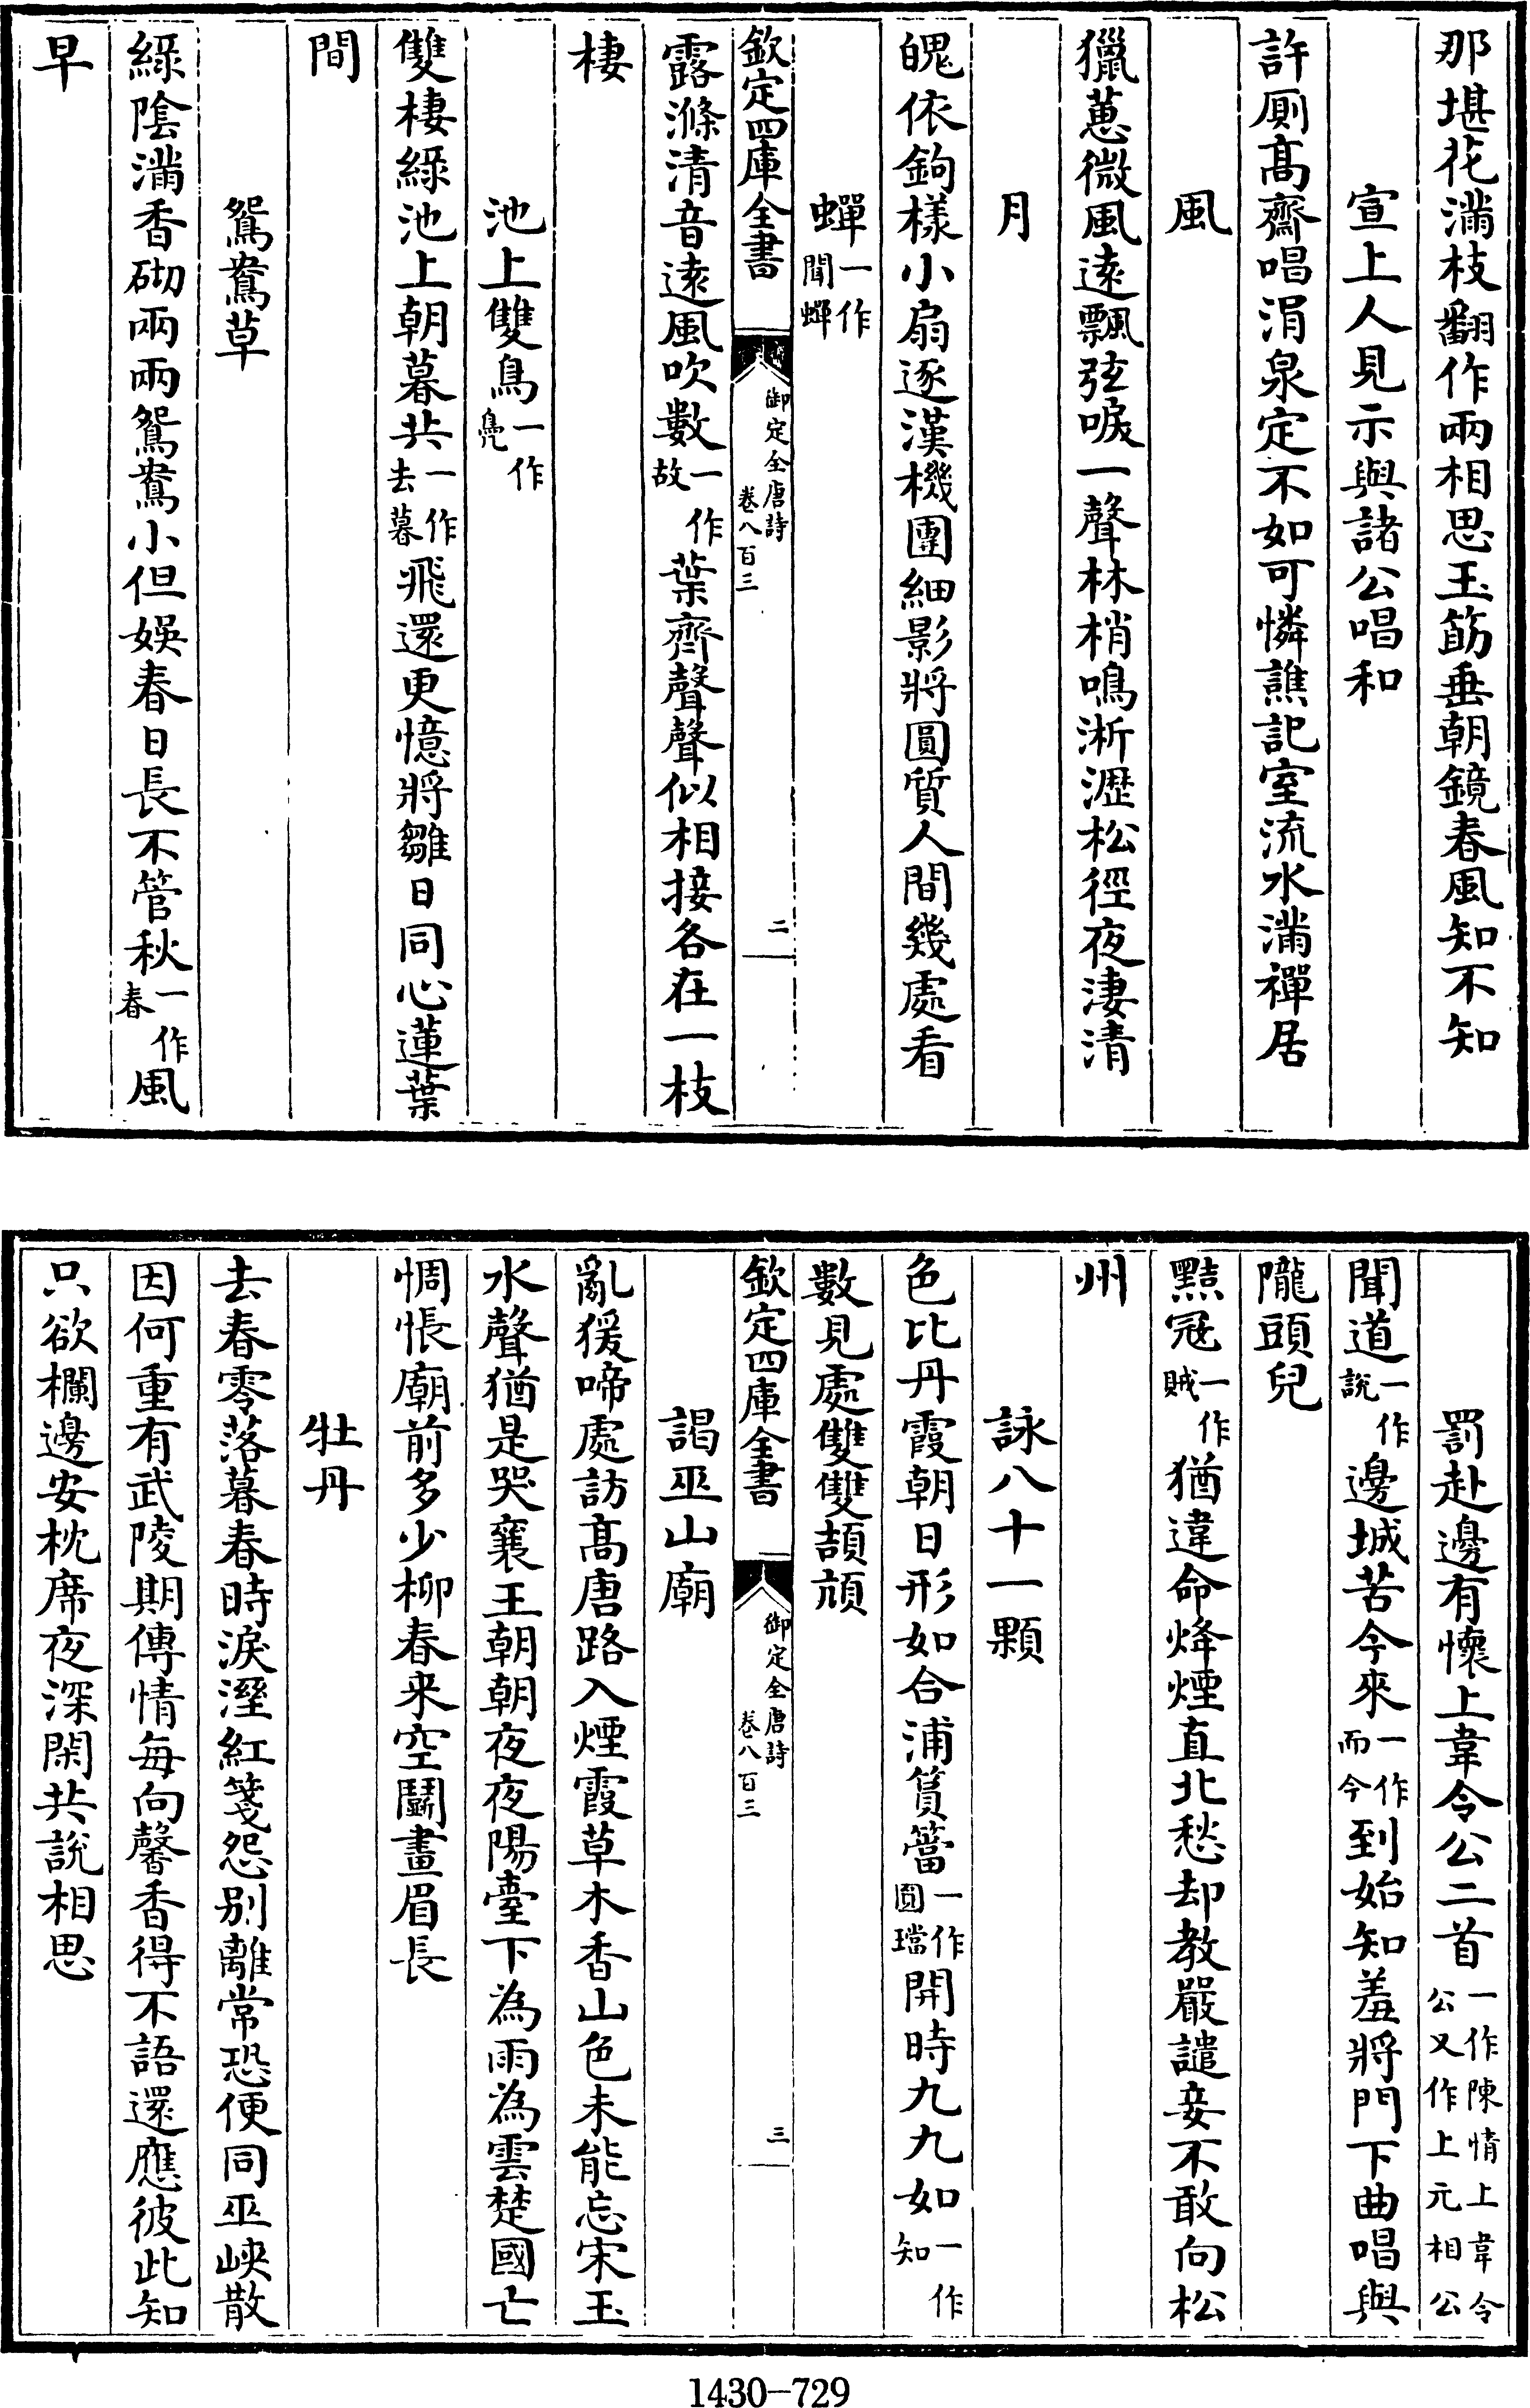 那堪花滿枝翻作兩相思玉筯垂朝鏡春風知不知
宣上人見示與諸公唱和
許厠髙齋唱涓泉定不如可憐譙記室流水滿禪居
風
獵蕙微風遠飄弦唳一聲林梢鳴淅瀝松徑夜淒清
月
魄依鉤樣小扇逐漢機團細影將圓質人間幾處看
蟬一作聞蟬
欽定四庫全書 御定全唐詩 卷八百三 二
露滌清音遠風吹數一作故葉齊聲聲似相接各在一枝
棲
池上雙鳥一作鳧
雙棲綠池上朝暮共一作去暮飛還更憶將雛日同心蓮葉
間
鴛鴦草
綠陰滿香砌兩兩鴛鴦小但娛春日長不管秋一作春風
早
罰赴邊有懷上韋令公二首一作陳情上韋令公又作上元相公
聞道一作說邊城苦今來一作而今到始知羞將門下曲唱與
隴頭兒
黠冦一作賊猶違命烽煙直北愁却教嚴譴妾不敢向松
州
詠八十一顆
色比丹霞朝日形如合浦篔簹一作圓璫開時九九如一作知
數見處雙雙頡頏
欽定四庫全書 御定全唐詩 卷八百三 三
謁巫山廟
亂猨啼處訪髙唐路入煙霞草木香山色未能忘宋玉
水聲猶是哭襄王朝朝夜夜陽臺下為雨為雲楚國亡
惆悵廟前多少柳春来空鬭畫眉長
牡丹
去春零落暮春時淚溼紅箋怨别離常恐便同巫峽散
因何重有武陵期傳情每向馨香得不語還應彼此知
只欲欄邊安枕席夜深閑共說相思
1430-729